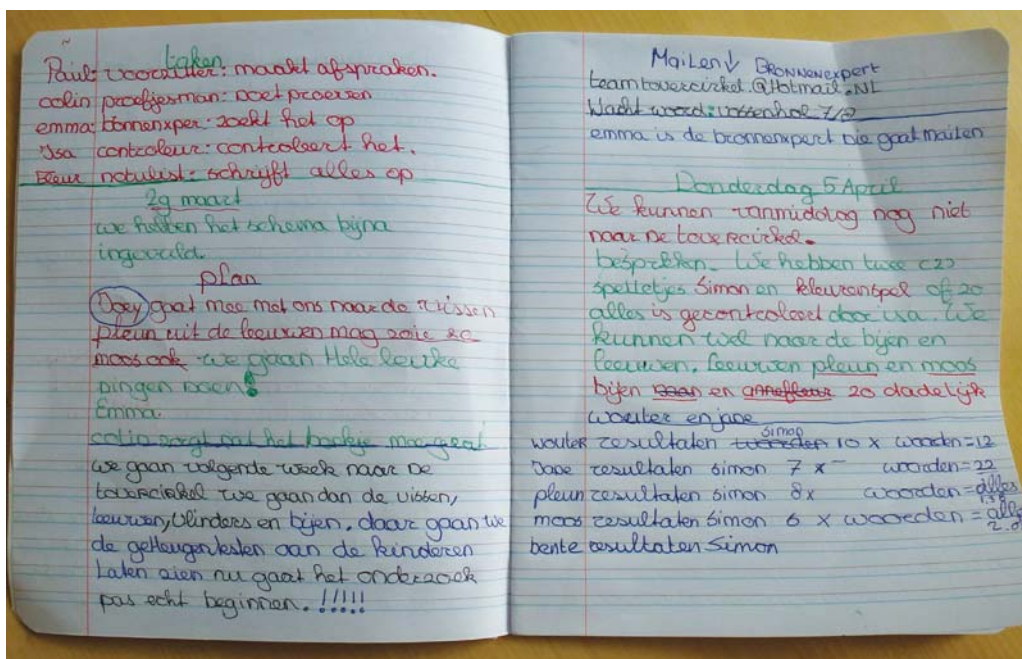 taken
Paul: voorzitter: maakt afspraken.
colin proefjesman: Doet proeven
emma: bonnenxper: zoekt het op
Isa controleur: controleert het.
Fleur notulist: schrijft alles op
29 maart
we hebben het schema bijna
ingevuld.
plan
Joey gaat mee met ons naar de vissen
pleun uit de leeuwen mag zoie zo
moos ook we gaan Hele leuke
Dingen Doen!
Emma.
colin zorgt dat het boekje mee gaat
we gaan volgende week naar De
tovercirkel we gaan dan de vissen,
leeuwen, vlinders en bijen. daar gaan we
de geheugentesten aan de kinderen
Laten zien nu gaat het onderzoek
pas echt beginnen. !!!!!
Mailen ↓ BRONNENexpert
teamtovercirkel.@Hotmail.NL
Wacht woord: vossenhol 7/8
emma is de bronnenxpert Die gaat mailen
Donderdag 5 April
We kunnen vanmiddag nog niet
naar De tovercirkel.
bespreken. We hebben twee (2)
spelletjes Simon en kleurenspel of 20
alles is gecontroleerd door isa. We
kunnen wel naar de bijen en
leeuwen. Leeuwen pleun en moos
bijen en 20 dadelijk
wouter en jane
wouter resultaten woorden simon 10 x woorden=12
Jane resultaten simon 7 x woorden=22
pleun resultaten simon 8x woorden=alles
moos resultaten simon 6 x woorden=alles
2.0
bente resultaten Simon